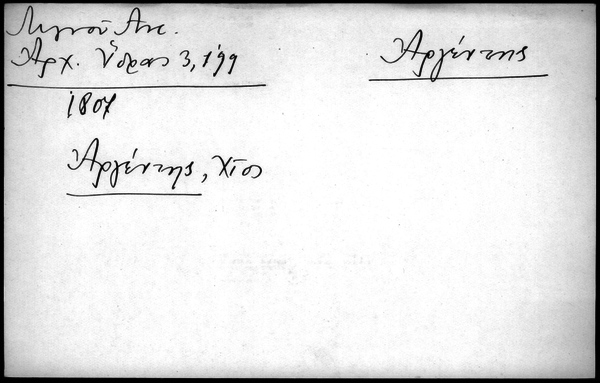 Λιγνού Αντ.
Ἀρχ. Ὕδρας 3, 199
Ἀργέντης
1807
Ἀργέντης, Χίος